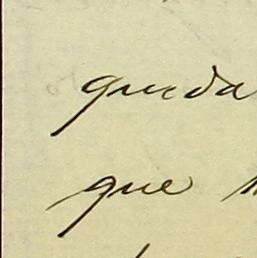 queda
que